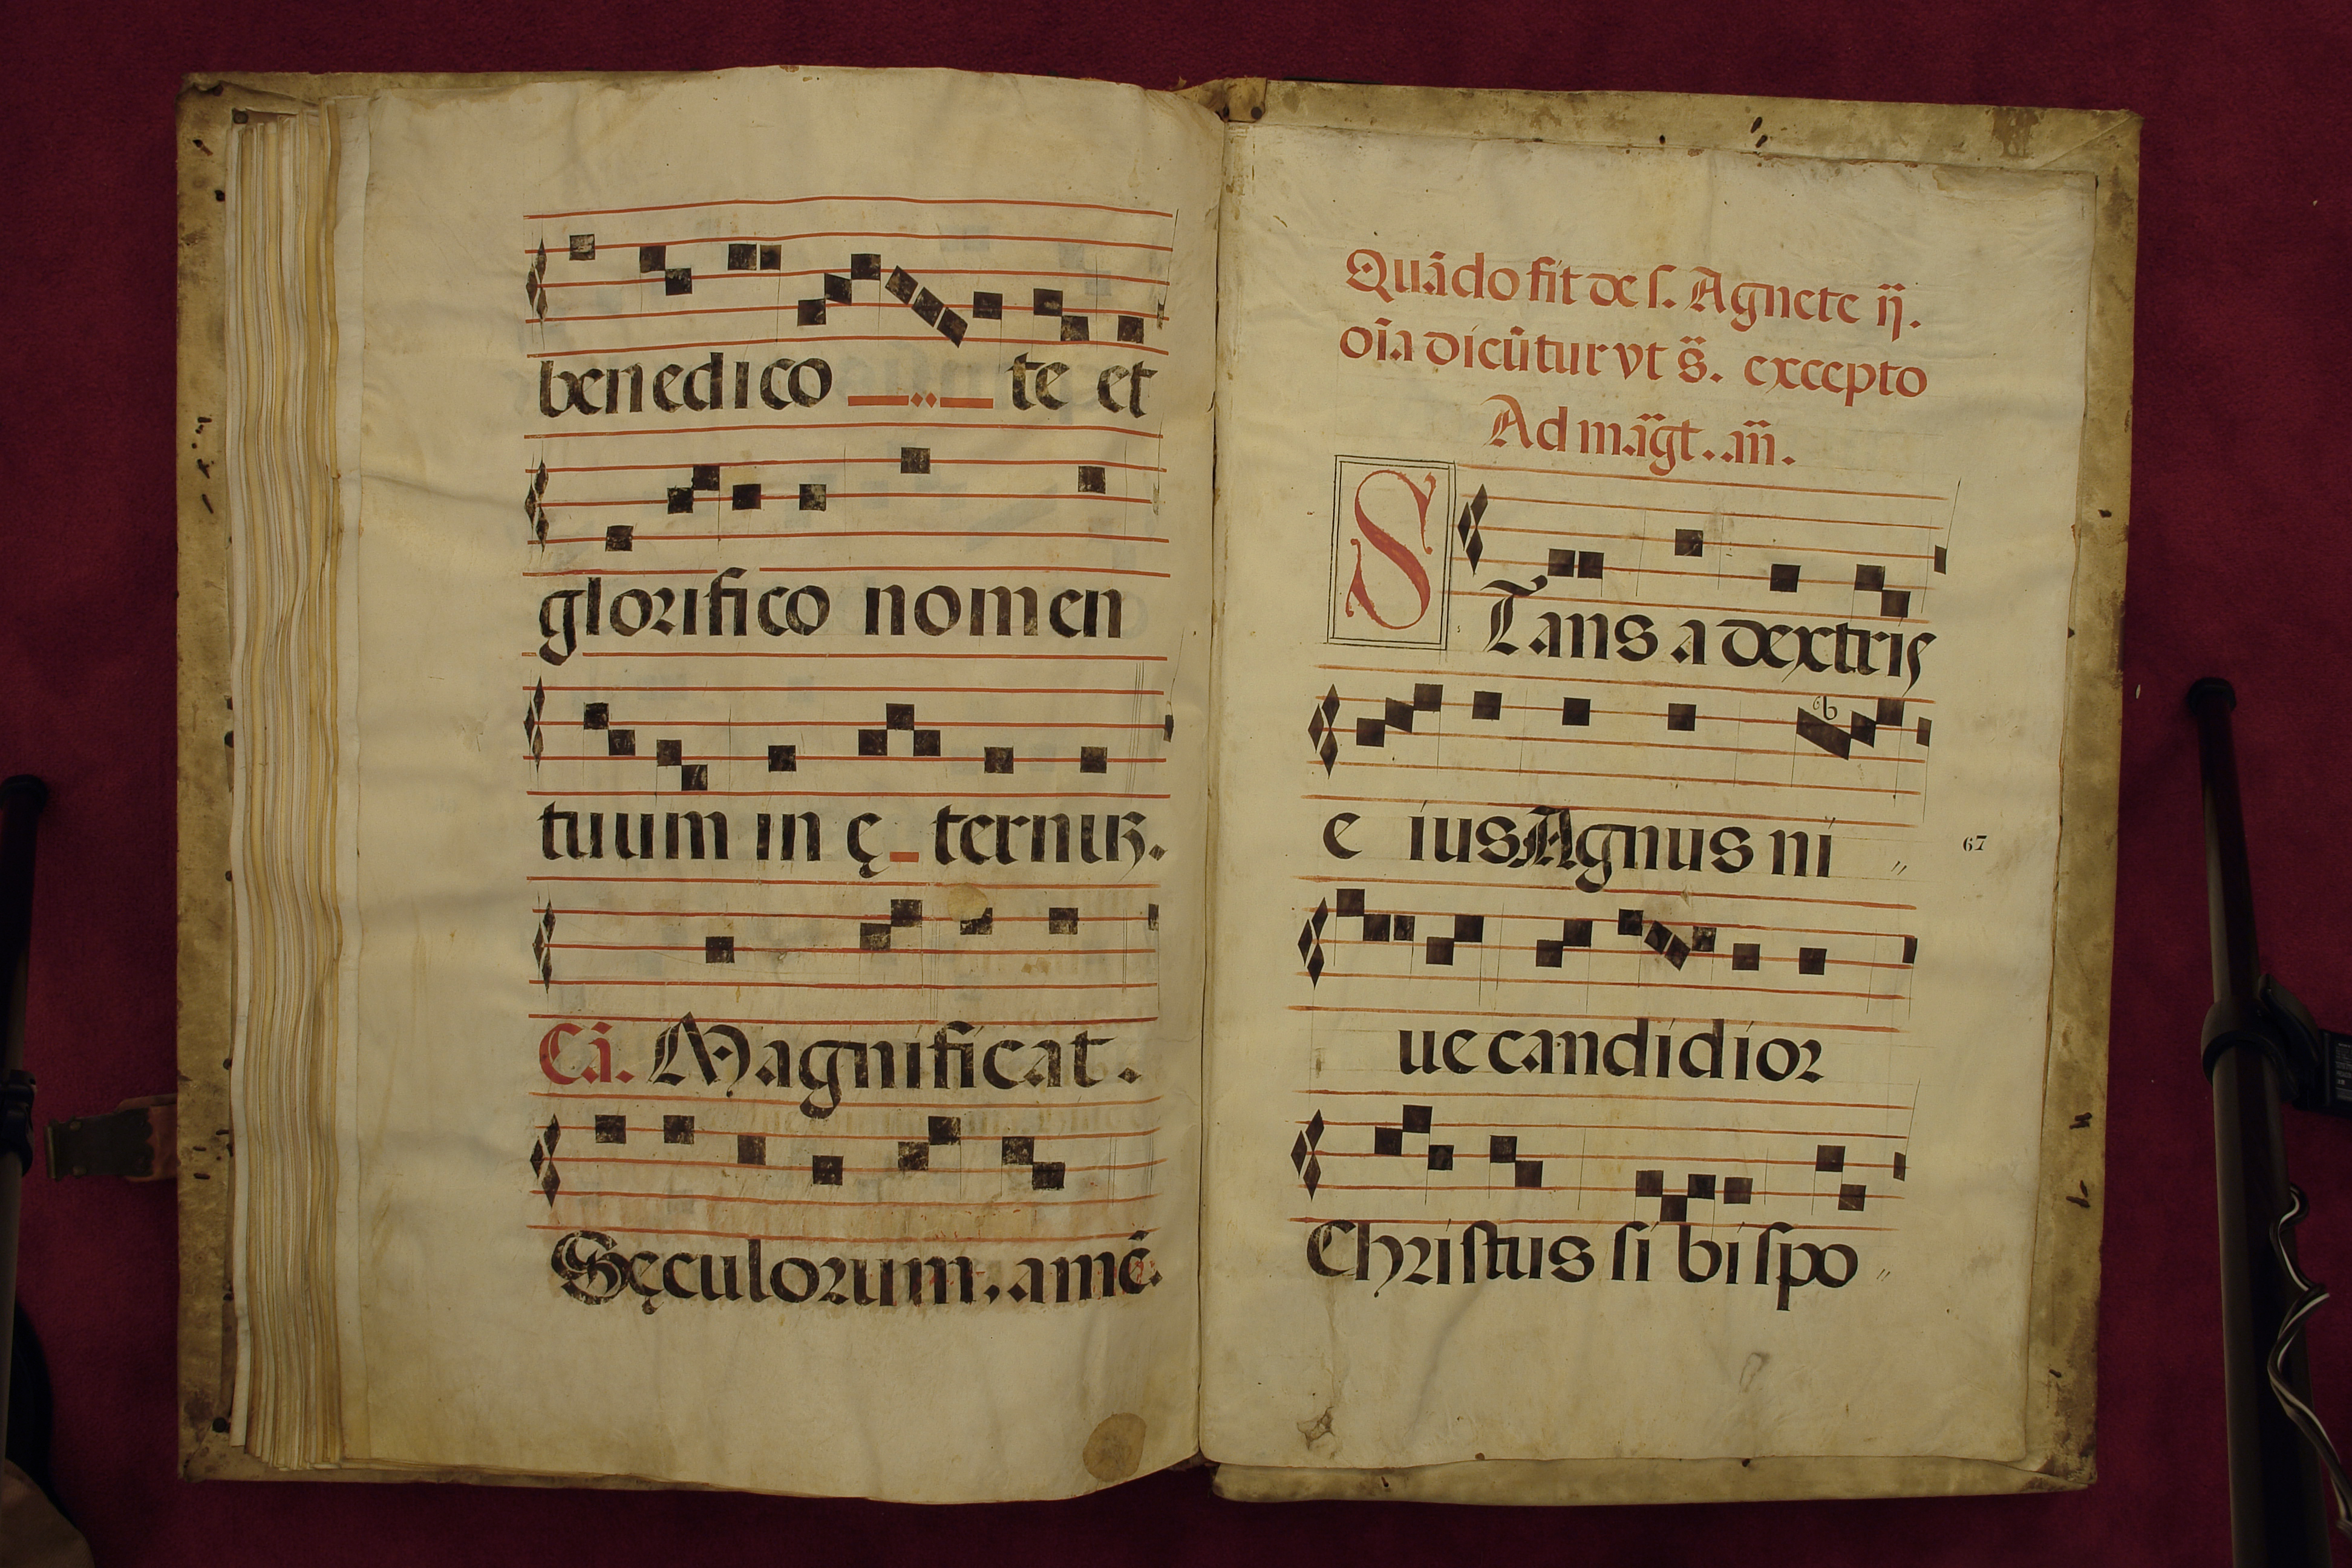 benedico te et
glorifico nomen
tuum in ę ternuʒ.
Cā. Magnificat.
Sęculorum, amē.
Quādo fit de s. Agnete ij.
oīa dicūtur vt s̄. excepto
Ad māgt. añ.
STans a dextris
e ius Agnus ni
67
ue candidior
Christus si bi spo